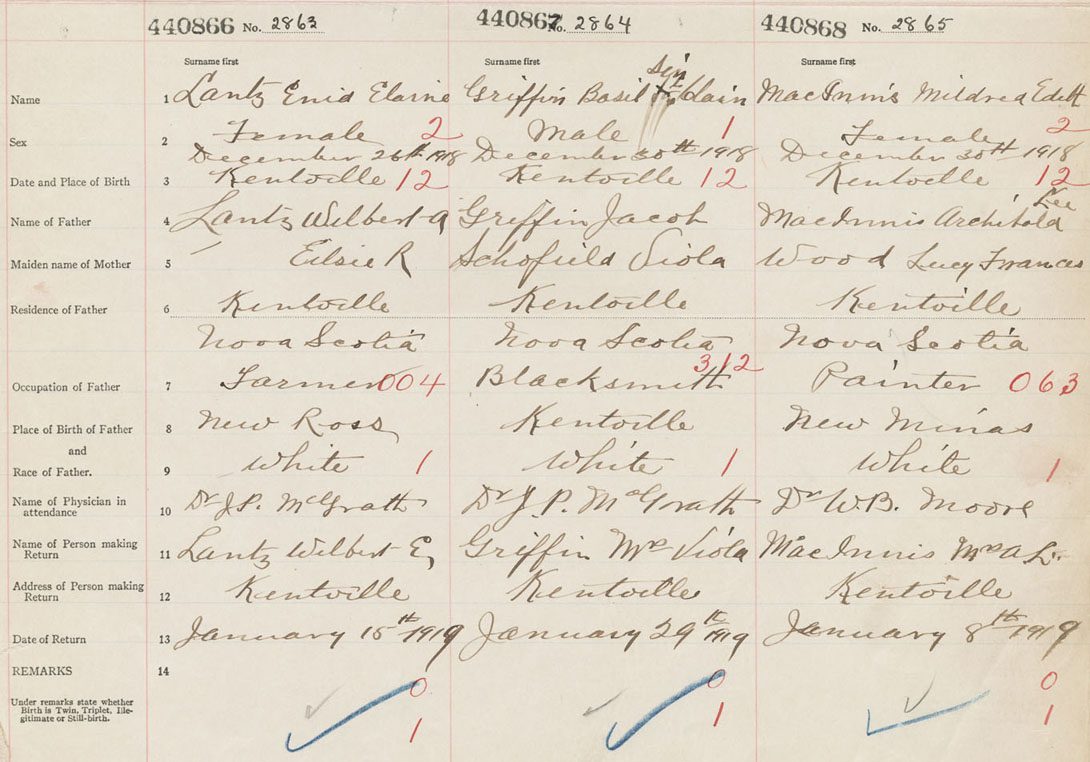 440866 No. 2863 440867 No. 2864 440868 No. 2865
Surname first Surname first Surname first
Name 1 Lantz Enid Elaine Griffin Basil Clair MacInnis Mildred Edith
Sex 2 Female 2 Male 1 Female 2
December 26th 1918 December 30th 1918 December 30th 1918
Date and Place of Birth 3 Kentville 12 Kentville 12 Kentville 12
Lee
Name of Father 4 Lantz Wilbert A Griffin Jacob MacInnis Archibald
Maiden name of Mother 5 Elsie R Schofield Viola Wood Lucy Frances
Residence of Father 6 Kentville Kentville Kentville
Nova Scotia Nova Scotia Nova Scotia
Occupation of Father 7 Farmer 004 Blacksmith 312 Painter 063
Place of Birth of Father 8 New Ross Kentville New Minas
and
Race of Father. 9 White 1 White 1 White 1
Name of Physician in
attendance 10 Dr J.P. McGrath Dr J.P. McGrath Dr W.B. Moore
Name of Person making
Return 11 Lantz Wilbert E Griffin Mrs Viola MacInnis Mrs A L.
Address of Person making
Return 12 Kentville Kentville Kentville
Date of Return 13 January 15th 1919 January 29th 1919 January 8th 1919
REMARKS 14
0 0 0
Under remarks state whether
Birth is Twin, Triplet, Ille-
gitimate or Still-birth.
1 1 1